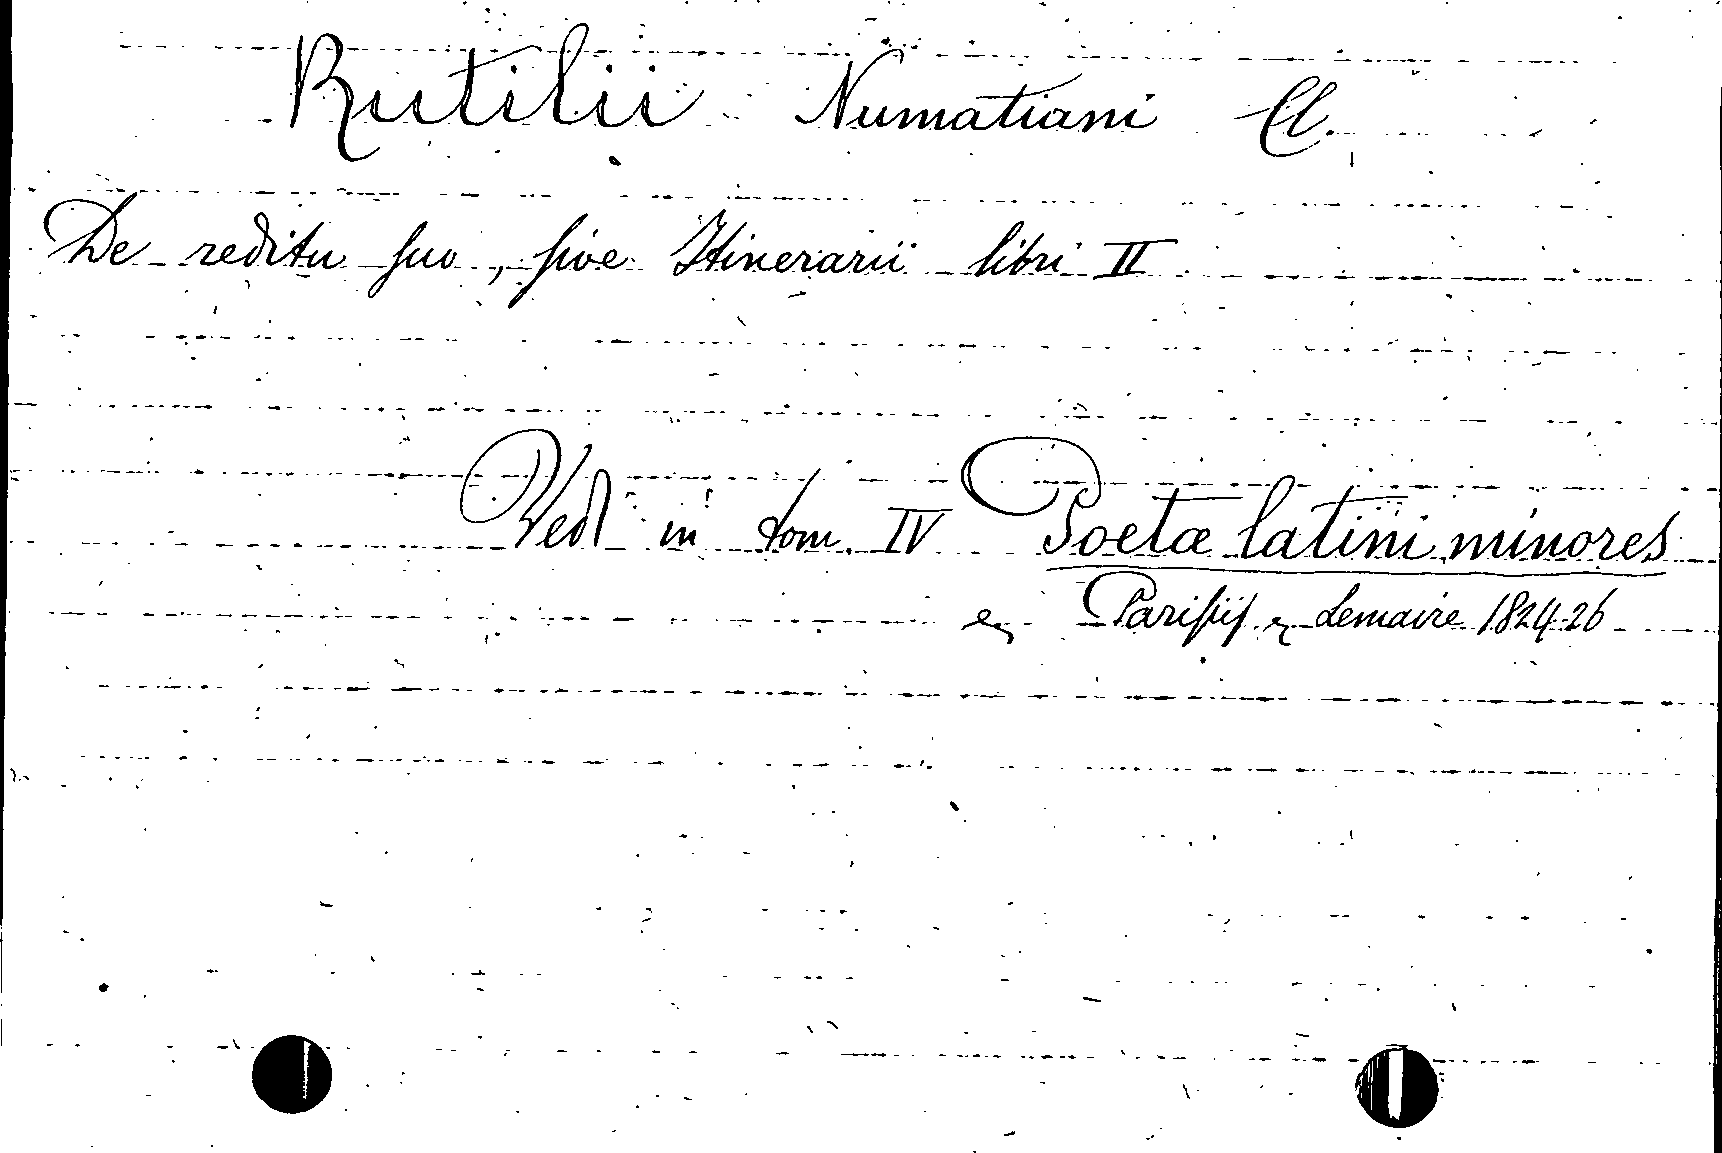 Rutilii Numatiani Cl.
De reditu suo, sive Itinerarii libri II
Ved in tom. IV Poetæ latini minores
Parisiis Lemaire 1824-26